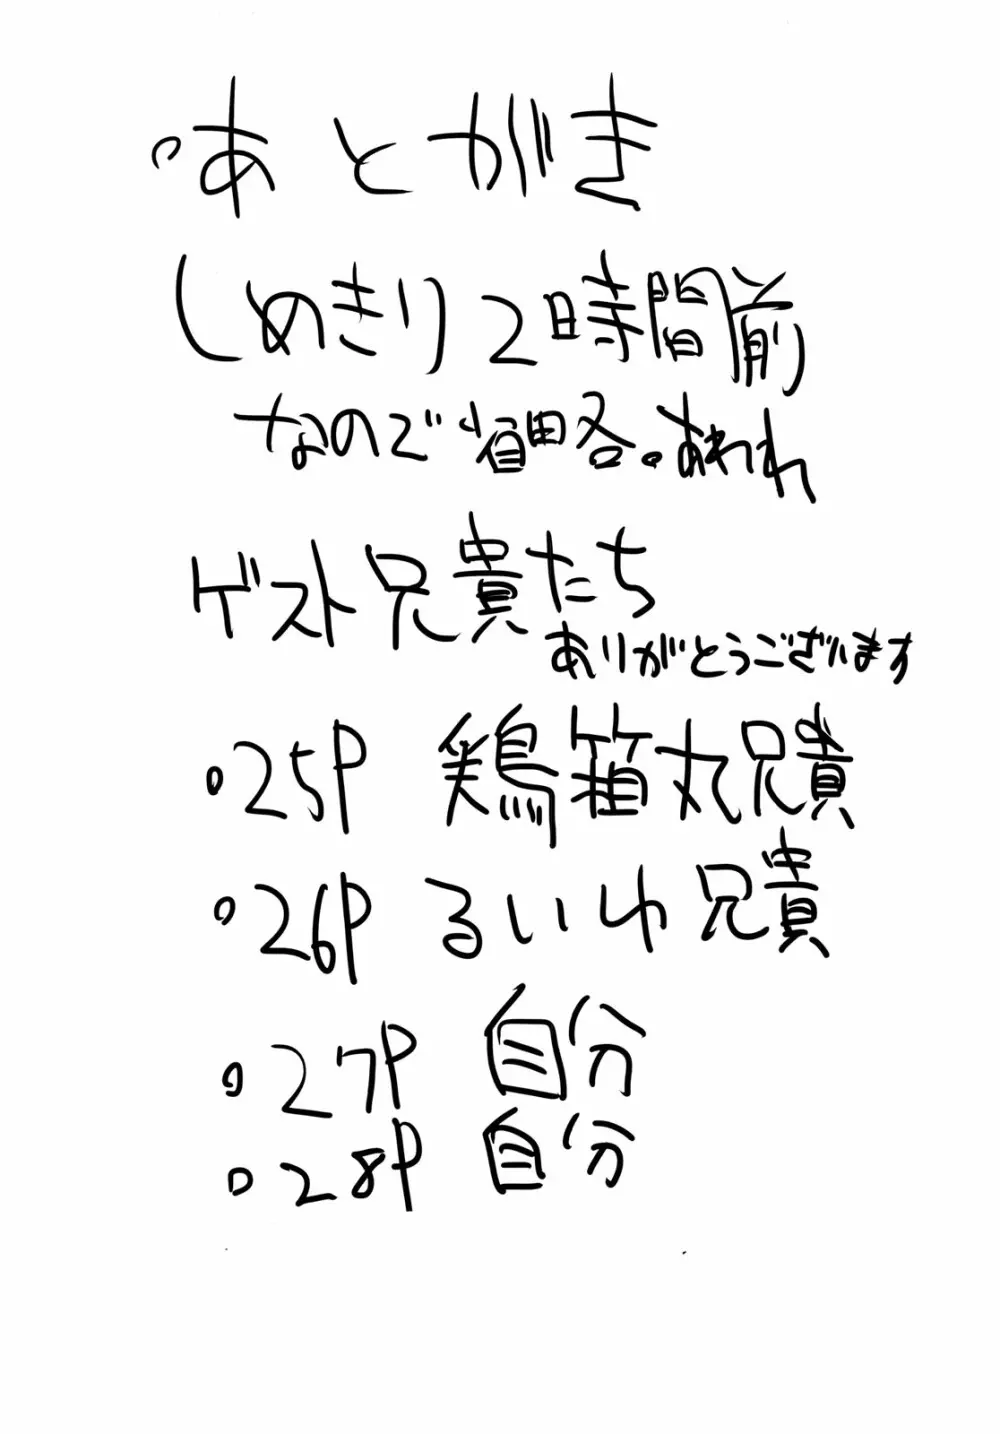 ・あとがき
しめきり2時間前
なので省略。あわれ
ゲスト兄貴たち
ありがとうございます
・25P 鶏箱丸兄貴
・26P るいゆ兄貴
・27P 自分
・28P 自分